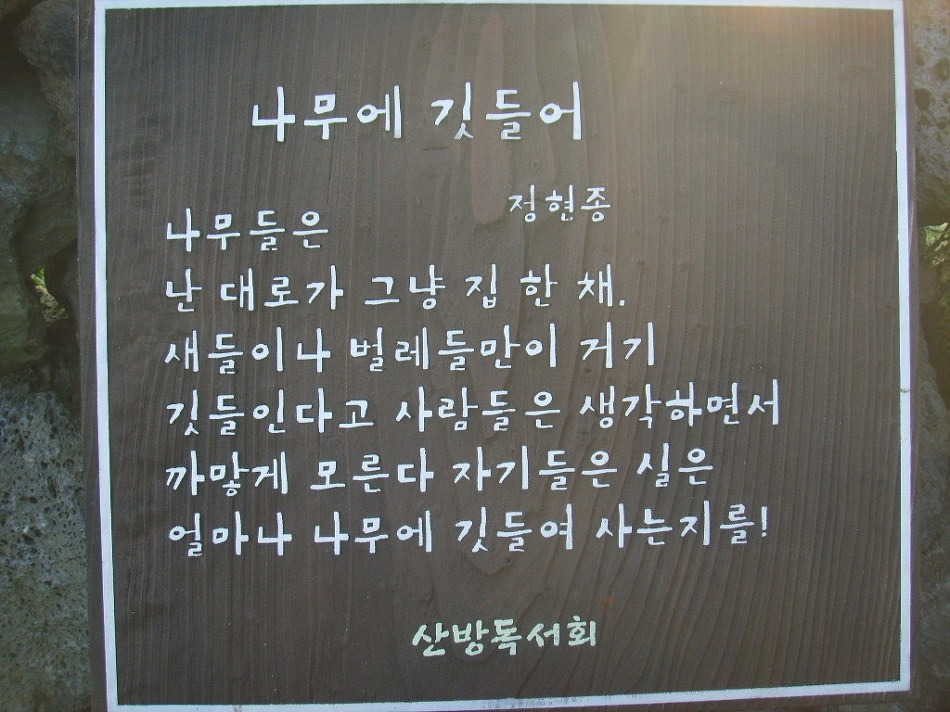 나무에 깃들어
정현종
나무들은
난 대로가 그냥 집 한 채.
새들이나 벌레들만이 거기
깃들인다고 사람들은 생각하면서
까맣게 모른다 자기들은 실은
얼마나 나무에 깃들여 사는지를!
산방독서회